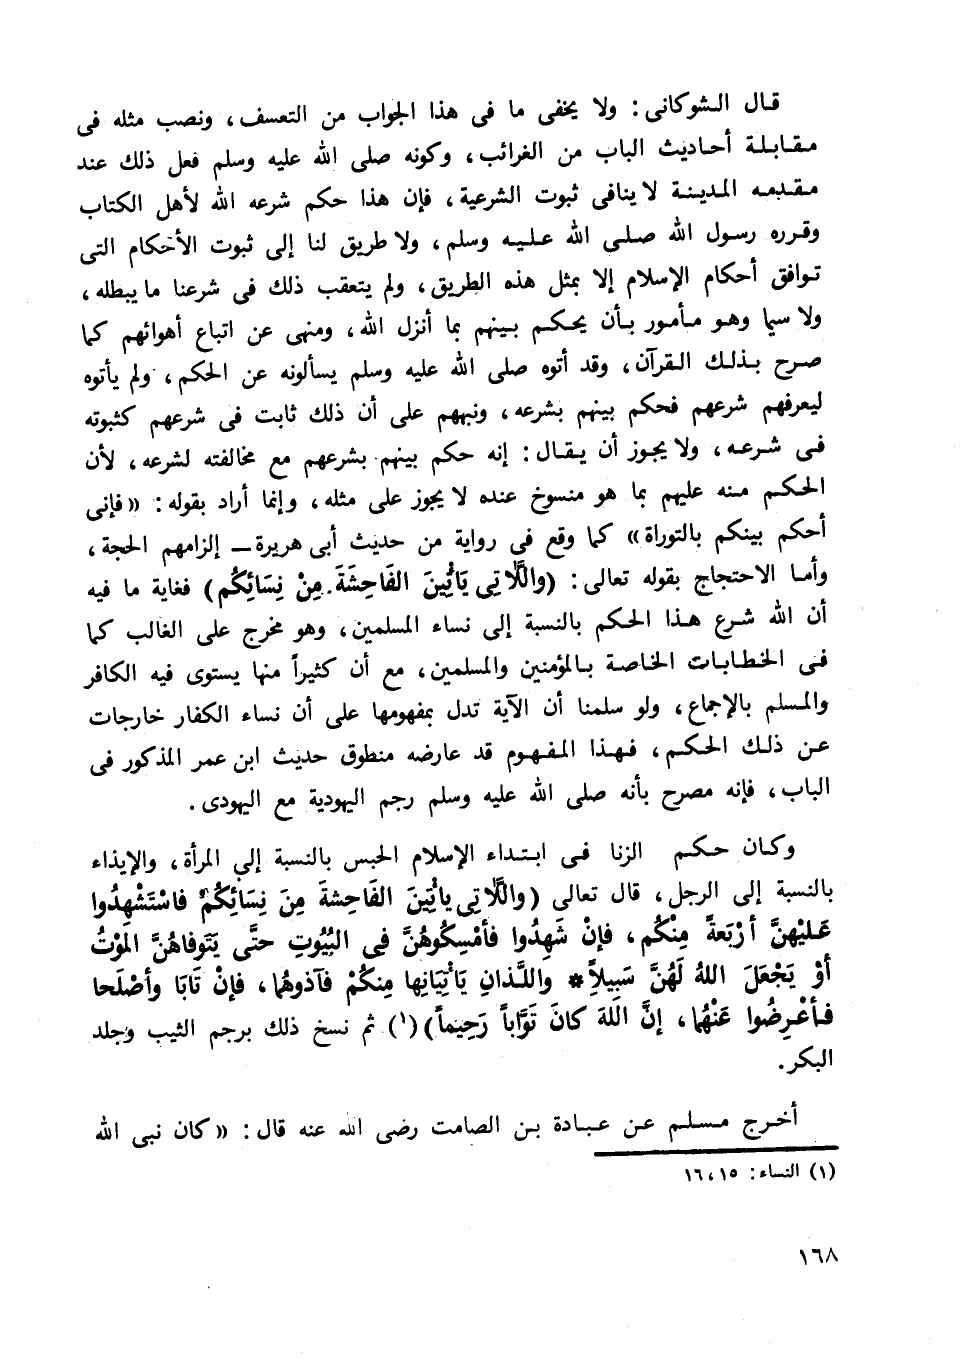 قال الشوكانى: ولا يخفى ما فى هذا الجواب من التعسف، ونصب مثله فى
مقابلة أحاديث الباب من الغرائب، وكونه صلى الله عليه وسلم فعل ذلك عند
مقدمه المدينة لا ينافى ثبوت الشرعية، فإن هذا حكم شرعه الله لأهل الكتاب
وقرره رسول الله صلى الله عليه وسلم، ولا طريق لنا إلى ثبوت الأحكام التى
توافق أحكام الإسلام إلا بمثل هذه الطريق، ولم يتعقب ذلك فى شرعنا ما يبطله،
ولا سيما وهو مأمور بأن يحكم بينهم بما أنزل الله، ومنهى عن اتباع أهوائهم كما
صرح بذلك القرآن، وقد أتوه صلى الله عليه وسلم يسألونه عن الحكم، ولم يأتوه
ليعرفهم شرعهم فحكم بينهم بشرعه، ونبههم على أن ذلك ثابت فى شرعهم كثبوته
فى شرعه، ولا يجوز أن يقال: إنه حكم بينهم بشرعهم مع مخالفته لشرعه، لأن
الحكم منه عليهم بما هو منسوخ عنده لا يجوز على مثله، وإنما أراد بقوله: «فإنى
أحكم بينكم بالتوراة» كما وقع فى رواية من حديث أبى هريرة ـ إلزامهم الحجة،
وأما الاحتجاج بقوله تعالى: (واللَّاتِى يَأْتِينَ الفَاحِشَةَ مِنْ نِسَائِكُم) فغاية ما فيه
أن الله شرع هذا الحكم بالنسبة إلى نساء المسلمين، وهو مخرج على الغالب كما
فى الخطابات الخاصة بالمؤمنين والمسلمين، مع أن كثيراً منها يستوى فيه الكافر
والمسلم بالإجماع، ولو سلمنا أن الآية تدل بمفهومها على أن نساء الكفار خارجات
عن ذلك الحكم، فهذا المفهوم قد عارضه منطوق حديث ابن عمر المذكور فى
الباب، فإنه مصرح بأنه صلى الله عليه وسلم رجم اليهودية مع اليهودى.
وكان حكم الزنا فى ابتداء الإسلام الحبس بالنسبة إلى المرأة، والإيذاء
بالنسبة إلى الرجل، قال تعالى (واللَّاتِى يأْتِينَ الفَاحِشةَ مِنَ نِسَائِكُمْ فاسْتَشْهِدُوا
عَليْهنَّ أرْبَعةً مِنْكُم، فإنْ شَهِدُوا فأمْسِكُوهُنَّ فِى البُيُوتِ حتَّى يَتَوفاهُنَّ المَوْتُ
أوْ يَجْعَلَ اللهُ لَهُنَّ سَبِيلاً * واللَّذانِ يَأْتِيَانِها مِنكُمْ فآذوهُما، فإنْ تَابَا وأصْلَحا
فأعْرِضُوا عَنْهُما، إنَّ اللَهَ كانَ تَوَّاباً رَحِيماً)(١) ثم نسخ ذلك برجم الثيب وجلد
البكر.
أخرج مسلم عن عبادة بن الصامت رضى الله عنه قال: «كان نبى الله
(١) النساء: ١٥، ١٦
١٦٨